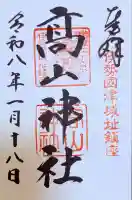 奉拝
伊勢國津城址鎮座
高山神社
令和八年一月十八日